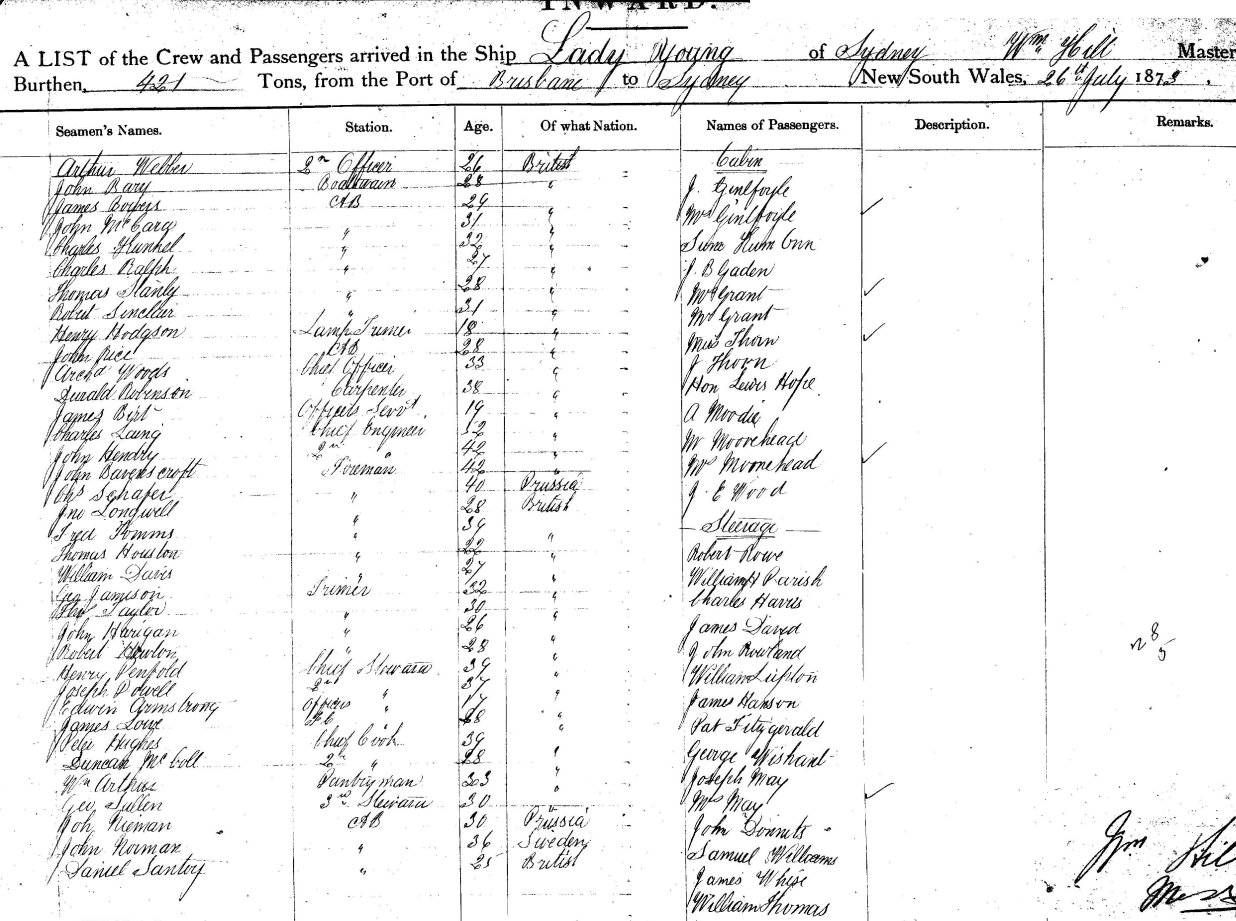 INWARD.
A LIST of the Crew and Passengers arrived in the Ship Lady Young of Sydney Wm Hill Master
Burthen, 421 Tons, from the Port of Brisbane to Sydney New South Wales, 26th July 1873.
Seamen's Names. Station. Age. Of what Nation. Names of Passengers. Description. Remarks.
Arthur Webber 2nd Officer 26 British Cabin
John Bary Boatswain 28 " J. Ginlfoyle
James AB 29 " Mrs Ginlfoyle ✓
John McCarg " 31 "
Charles Kunkel " 32 " Sune Hum Onn
Charles Ralph " 27 " J B Gaden
Thomas Stanly " 28 " Mrs Grant ✓
Robert Sinclair " 31 " Mr Grant
Henry Hodgson Lamp Trimer 18 " Miss Thorn ✓
John Rice AB 28 " J Thorn
Archd Woods Chief Officer 33 "
Durald Robinson Carpenter 38 " Hon Lewis Hope
James Birt Officers Servt. 19 " A Moodie
Charles Laing Chief Engineer 52 " Mr Moorehead
John Hendry 2nd " 42 " Mrs Moorehead ✓
John Ravenscroft Fireman 42 "
Chs Schafer " 40 Prussia J. E Wood
Jno Longwell " 28 British
Fred Tomms " 39 " Steerage
Thomas Houston " 22 " Robert Rowe
William Davis " 27 " William H Parish
Geo Jamieson Trimer 32 " Charles Harris
Taylor " 30 "
John Harigan " 26 " James David
Robert Howton " 28 " John Rowland
Henry Penfold Chief Steward 39 " William Lupton
Joseph Powell 2nd " 37 "
Edwin Armstrong Officers " 17 " James Hanson
James Lowe 28 " Pat Fitzgerald
Peter Hughes Chief Cook 39 " George Wishant
Duncan McColl 2nd " 28 "
Wm Arthur Pantryman 303 " Joseph May
Geo Sullen 3rd Steward 30 " Mrs May ✓
Joh Nieman AB 30 Prussia John Donnuts
John Norman " 36 Sweden Samuel Williams
Daniel Santry " 25 British James White
William Thomas
28
5
Wm Hil